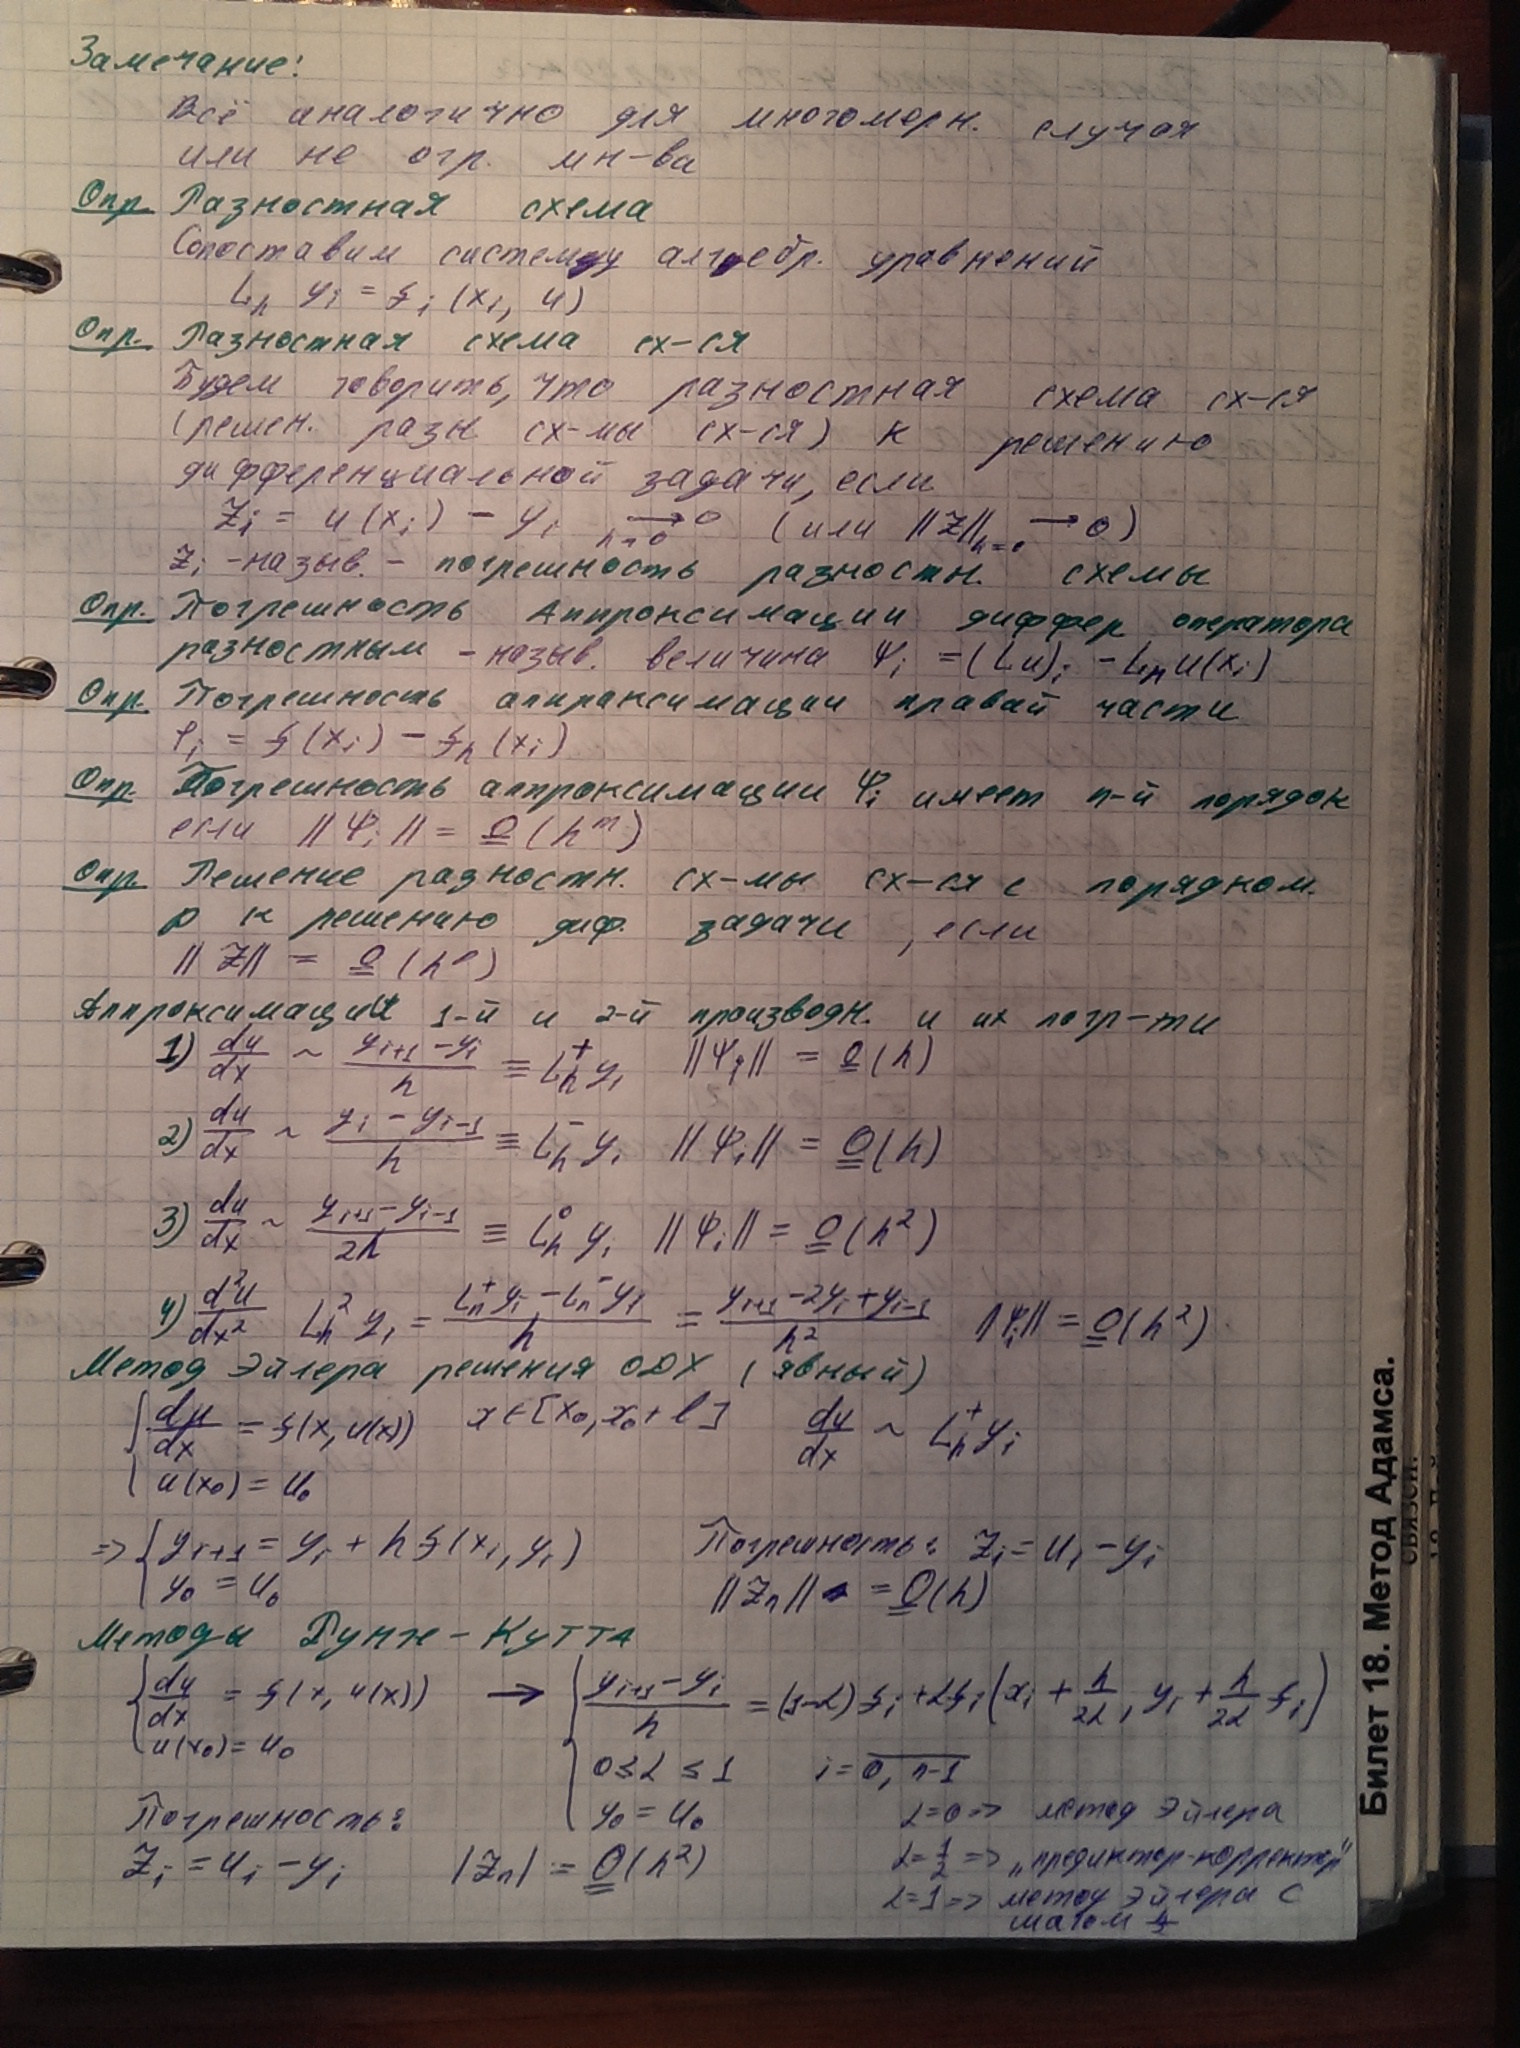 Замечание:
Всё аналогично для многомерн. случая
или не огр. мн-ва
Опр. Разностная схема
Сопоставим систему алгебр. уравнений
L_h y_i = f_i (x_i, u)
Опр. Разностная схема сх-ся
Будем говорить, что разностная схема сх-ся
(решен. разн сх-мы сх-ся) к решению
дифференциальной задачи, если
z_i = u(x_i) - y_i →_{h→0} 0 (или ||z||_{h=0} → 0)
z_i - назыв. - погрешность разностн. схемы
Опр. Погрешность Аппроксимации диффер оператора
разностным - назыв. величина Ψ_i = (Lu)_i - L_h u(x_i)
Опр. Погрешность аппраксимации правай части
φ_i = f(x_i) - f_h(x_i)
Опр. Погрешность аппроксимации Ψ_i имеет n-й порядок
если ||Ψ_i|| = O(h^m)
Опр. Решение разностн. сх-мы сх-ся с порядком.
p к решению диф. задачи, если
||z|| = O(h^p)
Аппроксимации 1-й и 2-й производн. и их погр-ти
1) du/dx ~ (y_{i+1} - y_i)/h ≡ L_h^+ y_i ||Ψ_i|| = O(h)
2) du/dx ~ (y_i - y_{i-1})/h ≡ L_h^- y_i ||Ψ_i|| = O(h)
3) du/dx ~ (y_{i+1} - y_{i-1})/2h ≡ L_h^0 y_i ||Ψ_i|| = O(h^2)
4) d^2u/dx^2 L_h^2 y_i = (L_h^+ y_i - L_h^- y_i)/h = (y_{i+1} - 2y_i + y_{i-1})/h^2 ||Ψ_i|| = O(h^2)
Метод Эйлера решения ОДУ (явный)
{ du/dx = f(x, u(x)) x∈[x_0, x_0 + l] du/dx ~ L_h^+ y_i
u(x_0) = u_0
=> { y_{i+1} = y_i + h f(x_i, y_i) Погрешность: z_i = u_i - y_i
y_0 = u_0 ||z_n|| = O(h)
Методы Рунге - Кутта
{ du/dx = f(x, u(x)) → { (y_{i+1} - y_i)/h = (1-α) f_i + α f_i (x_i + h/2α, y_i + h/2α f_i)
u(x_0) = u_0
0 ≤ α ≤ 1 i = \overline{0, n-1}
Погрешность: y_0 = u_0 α=0 => метод Эйлера
z_i = u_i - y_i |z_n| = O(h^2) α=1/2 => „предиктор-корректор"
α=1 => метод Эйлера с
шагом
Билет 18. Метод Адамса.
связей.